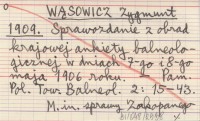 WĄSOWICZ Zygmunt
1909. Sprawozdanie z obrad
krajowej ankiety balneolo-
gicznej w dniach 7-go i 8-go
maja 1906 roku. – Pam.
Pol. Tow. Balneol. 2: 15-43.
M.in. sprawy Zakopanego